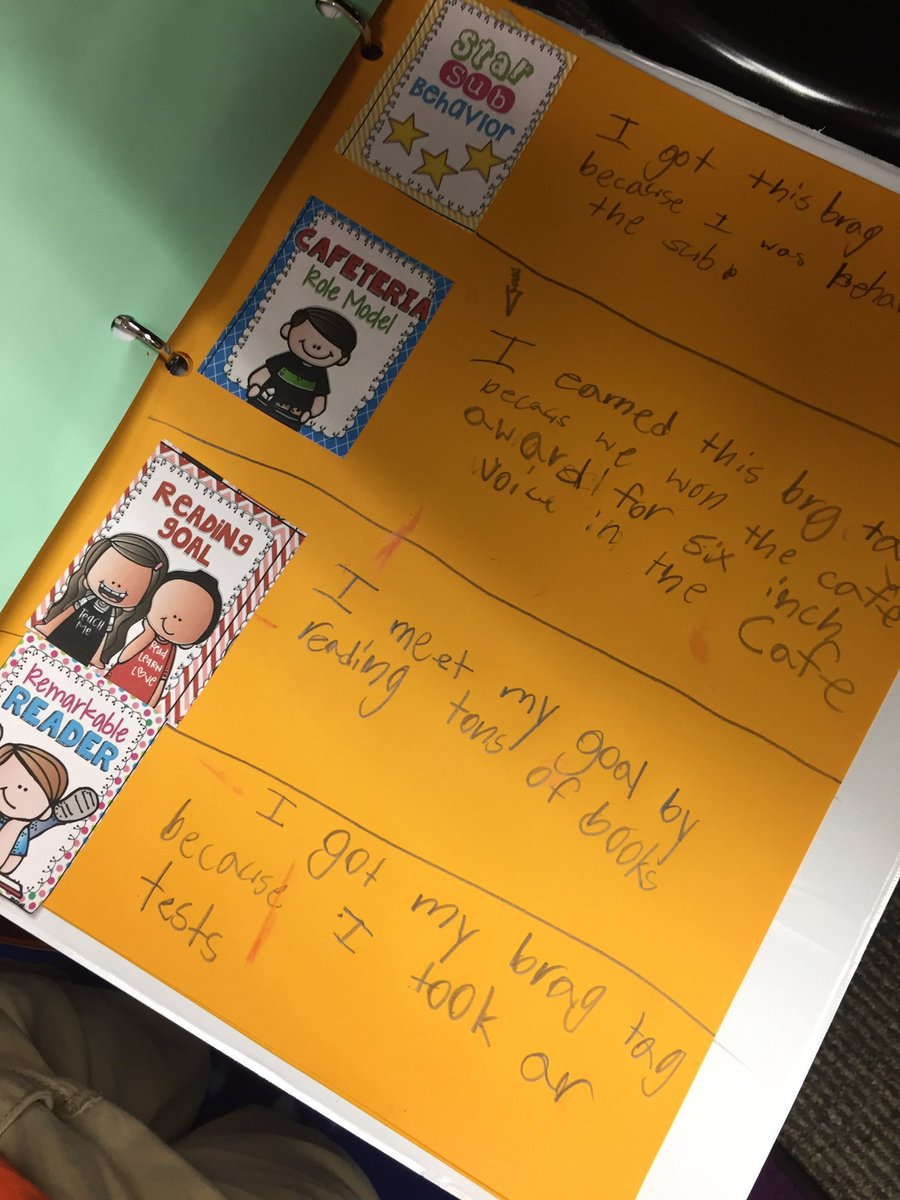 Star
Sub
Behavior
I got this brag
because I was behav
the sub.
CAFETERIA
Role Model
I earned this brg ta
becaus we won the cafe
award for six inch
voice in the Cafe
READING
GOAL
TEACH
ME
READ
LEARN
LOVE
I meet my goal by
reading tons of books
Remarkable
READER
I got my brag tag
because I took ar
tests